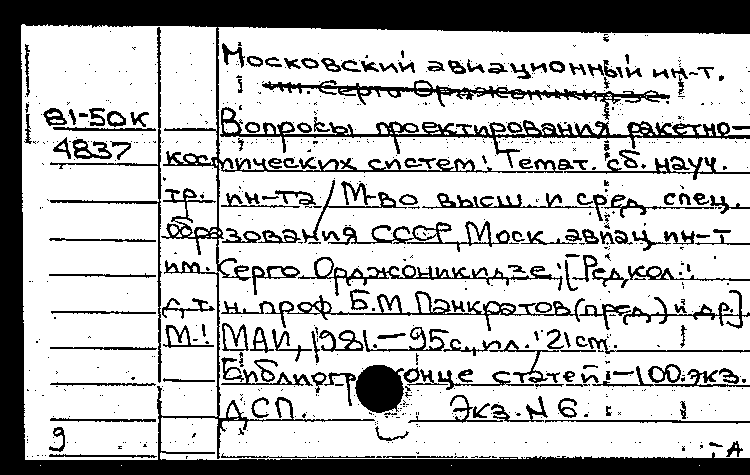 Московский авиационный ин-т.
им. Серго Орджоникидзе.
81-50К Вопросы проектирования ракетно-
4837 космических систем: Темат. сб. науч.
тр. ин-та / М-во высш. и сред. спец.
образования СССР, Моск. авиац. ин-т
им. Серго Орджоникидзе; [Редкол.:
д.т.н. проф. Б.М. Панкратов (пред.) и др.].
М.: МАИ, 1981. — 95с., ил.; 21см.
Библиогр. конце статей. — 100 экз.
ДСП. Экз. N 6.
9